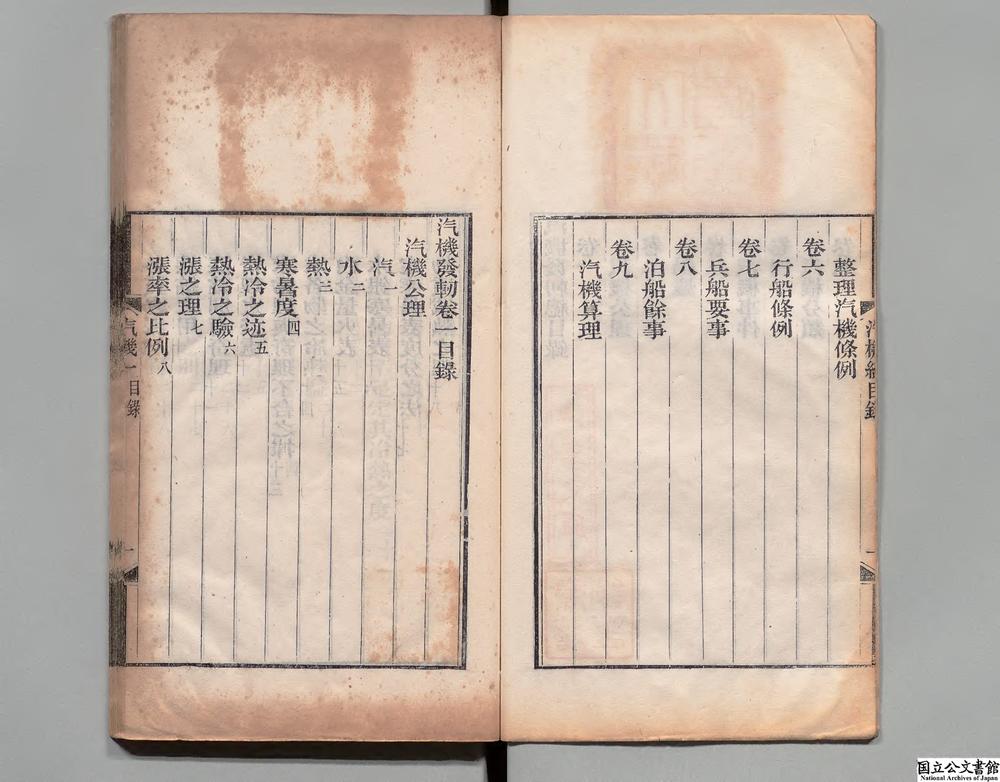 整理汽機條例
卷六
行船條例
卷七
兵船要事
卷八
泊船餘事
卷九
汽機算理
汽機發軔卷一目錄
汽機公理
汽一
水二
熱三
寒暑度四
熱冷之迹五
熱冷之驗六
漲之理七
漲率之比例八
一目錄
一
国立公文書館
National Archives of Japan